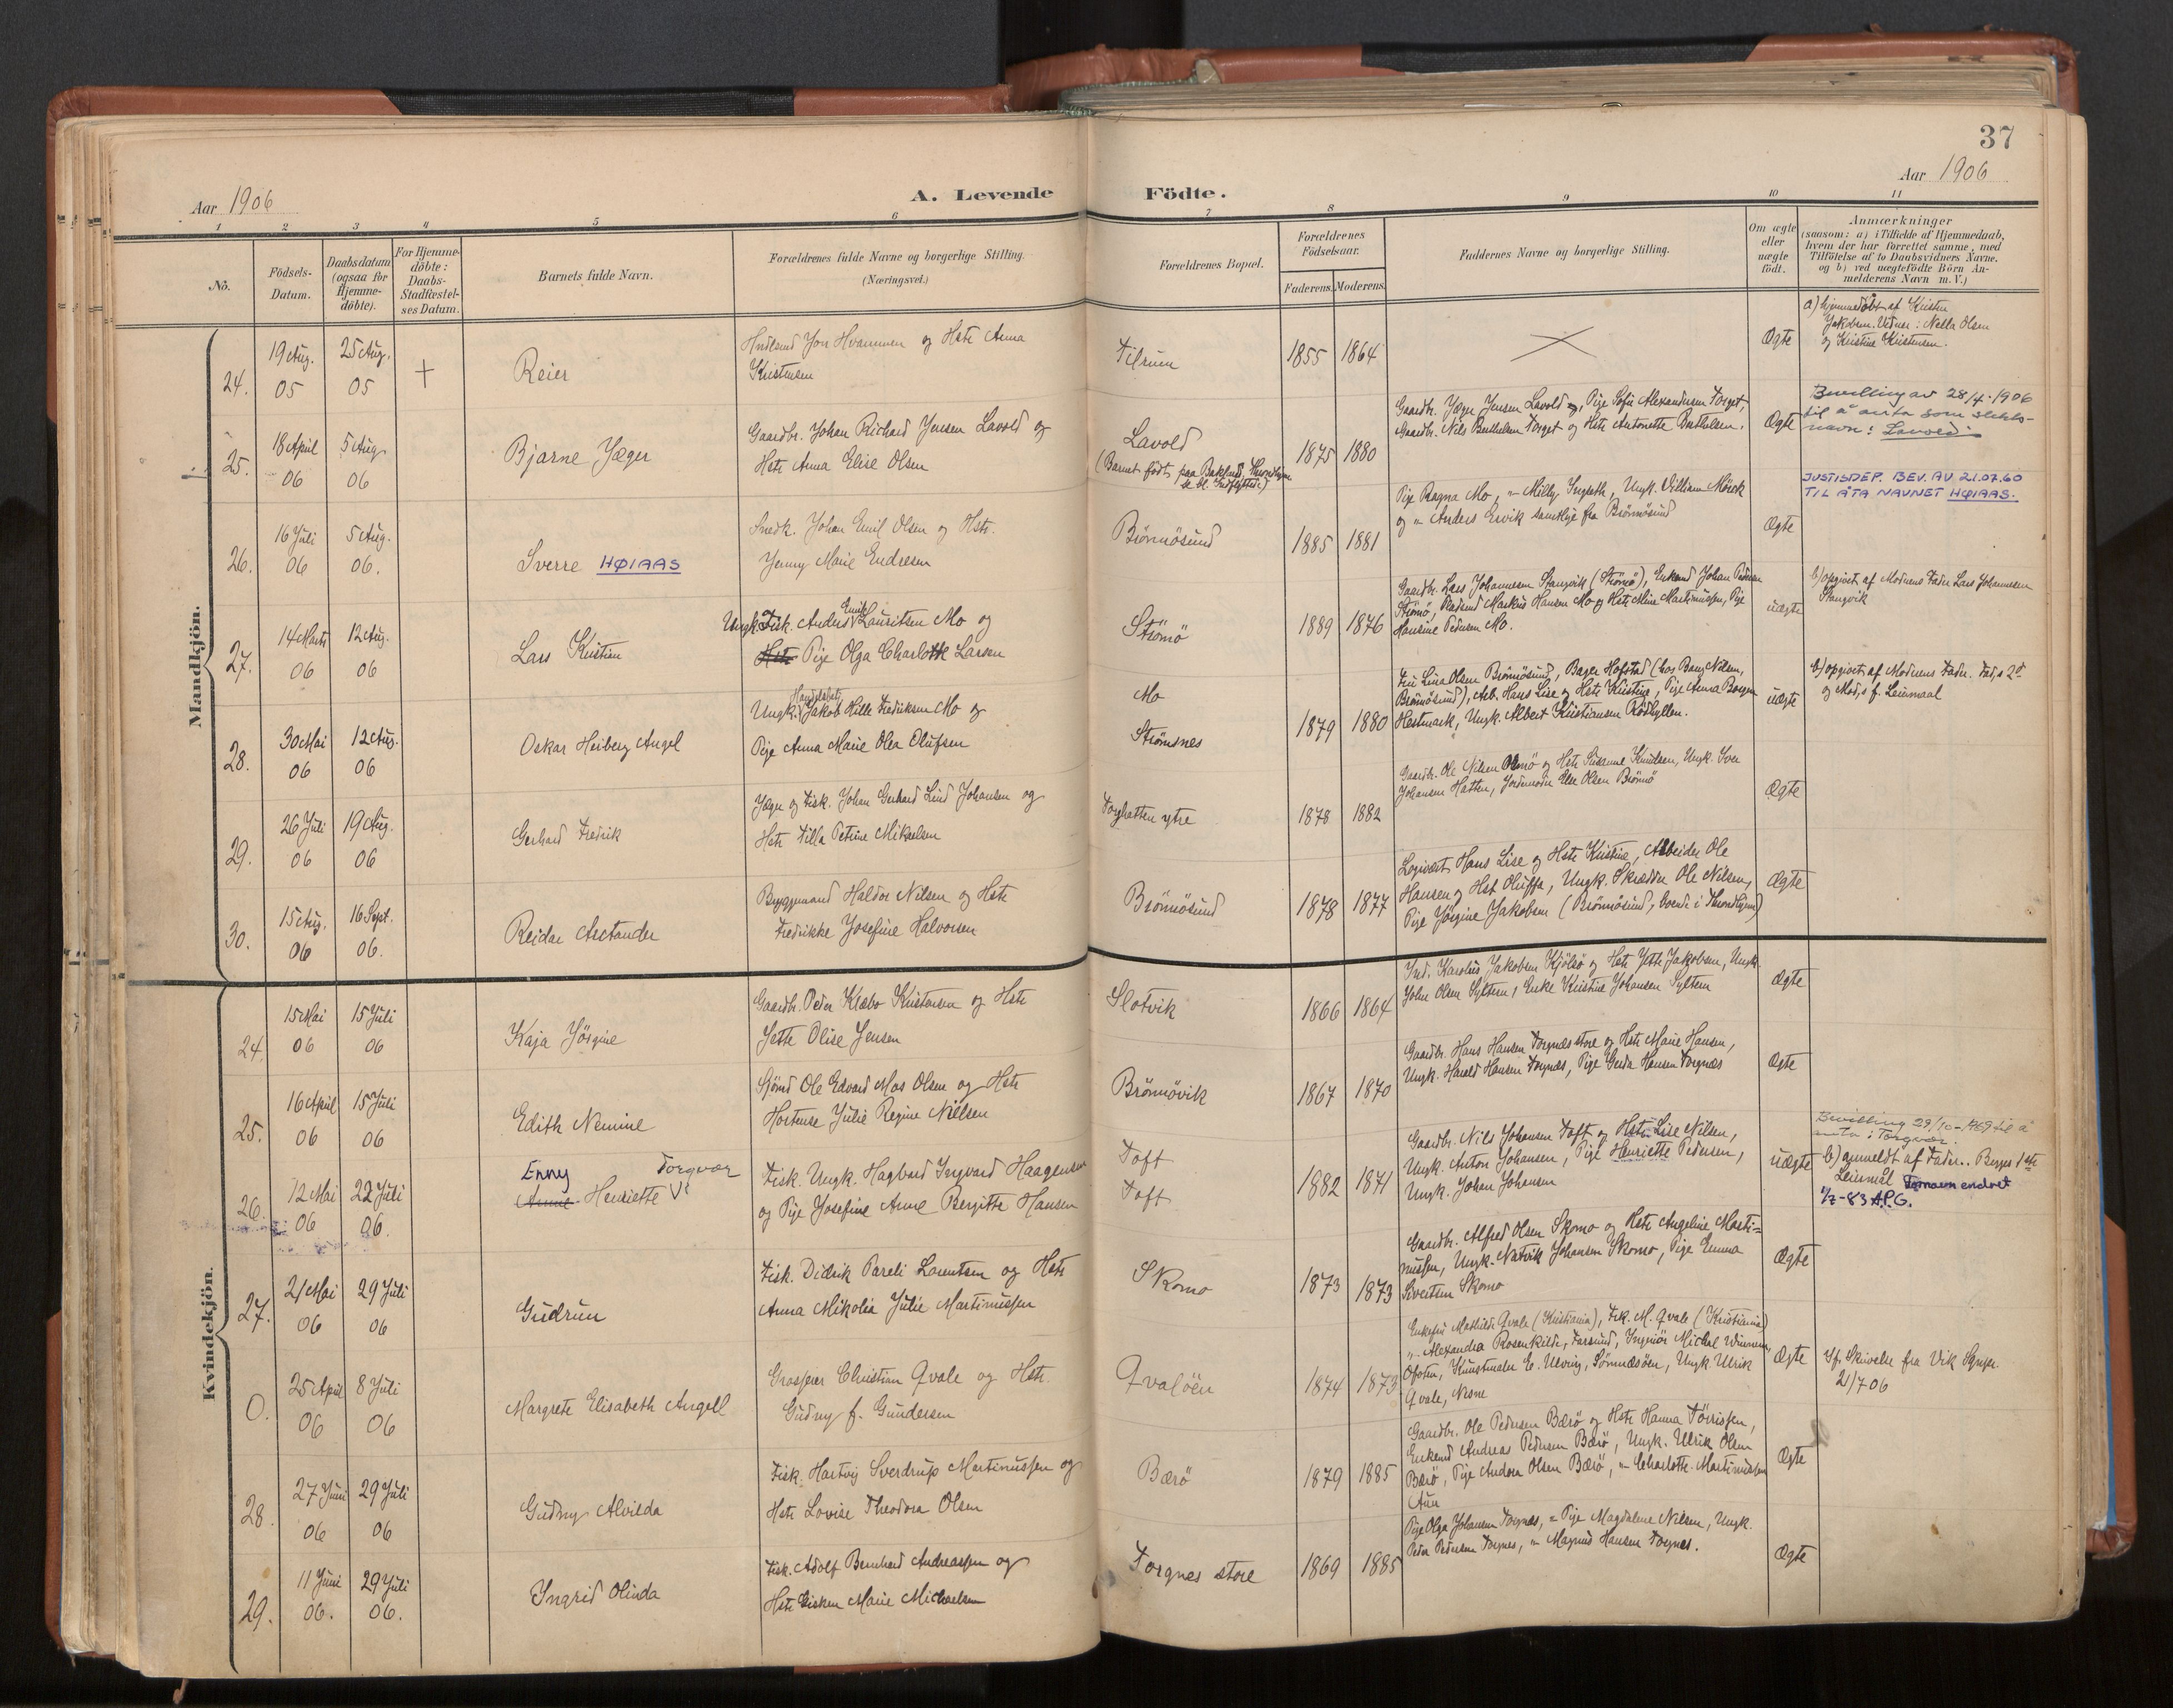 37
Aar 1906
Aar 1906
A. Levende Födte.
1 2 3 4 5 6 7 8 9 10 11
Nô.
Födsels-
Datum.
Daabsdatum
(ogsaa for
Hjemme-
döbte).
For Hjemme-
döbte:
Daabs-
Stadfæstel-
ses Datum.
Barnets fulde Navn.
Forældrenes fulde Navne og borgerlige Stilling.
(Næringsvei.)
Forældrenes Bopæl.
Forældrenes
Födselsaar.
Faderens. Moderens.
Faddernes Navne og borgerlige Stilling.
Om ægte
eller
uægte
födt.
Anmærkninger
(saasom: a) i Tilfælde af Hjemmedaab,
hvem der har forrettet samme, med
Tilföielse af to Daabsvidners Navne.
og b) ved uægtefödte Börn An-
melderens Navn m. V.)
Mandkjön.
24.
19 Aug.
05
25 Aug.
05
+
Reier
Jon Hvammen og Hstr Anna
Kristensen
Tilrum
1855 1864
Ægte
a) hjemmedöbt af Kristen
Jakobsen. Vidner: Nella Olsen
og Kristine Kristensen.
25.
18 April
06
5 Aug.
06
Bjarne Jæger
Gaardbr. Johan Richard Jensen Lavold og
Hstr Anna Elise Olsen
Lavold
(Barnet födt paa Baklandet, Throndhjem
se bl. Indflyttede)
1875 1880
Gaardbr. Jæger Jensen Lavold og Pige Sofie Alexandersen Torget,
Gaardbr. Nils Berthelsen Torget og Hstr Antonette Berthelsen.
Ægte
Bevilling av 28/4-1906
til å anta som slekts-
navn: Lavold.
26.
16 Juli
06
5 Aug.
06.
Sverre HØIAAS
Snedk. Johan Emil Olsen og Hstr.
Jenny Marie Endresen
Brönnösund
1885 1881
Pige Ragna Mo, " Milly Ingseth, Ungk. William Mörck
og " Anders Ervik samtlige fra Brönnösund
Ægte
JUSTISDEP. BEV. AV 21.07.60
TIL Å TA NAVNET HØIAAS.
27.
14 Marts
06
12 Aug.
06
Lars Kristian
Ungk. Fisk. Anders Emil Lauritsen Mo og
Hstr Pige Olga Charlotte Larsen
Strömö
1889 1876
Gaardbr. Lars Johannesen Stangvik (Strömö), Enkemd Johan Pedersen
Strömö, Markus Hansen Mo og Hstr Mine Martinussen, Pige
Hansine Pedersen Mo.
uægte
b) opgivet af Moderens Fader Lars Johannesen
Stangvik
28.
30 Mai
06
12 Aug.
06
Oskar Heiberg Angel
Ungk. Handelsbetj. Jakob Hille Fredriksen Mo og
Pige Anna Marie Olea Olufsen
Mo
Strömsnes
1879 1880
Fru Lina Olsen Brönnösund, Bager Hofstad (hos Bang Nilsen,
Brönnösund), Arb. Hans Lise og Hstr Kristine, Pige Anna Borgen
Hestmark, Ungk. Albert Kristiansen Rödhyllen.
uægte
b) opgivet af Moderens Fader. Fad.s 2d
og Mod.s f. Leiermaal
29.
26 Juli
06
19 Aug.
06
Gerhard Fredrik
Jæger og Fisk. Johan Gerhard Lind Johansen og
Hstr Tilla Petrine Mikaelsen
Torghatten ytre
1878 1882
Gaardbr. Ole Nilsen og Hstr Susanne Knudsen, Ungk. Iver
Johansen Hatten, Jordmoder Else Olsen Brönnö
Ægte
30.
15 Aug.
06
16 Sept.
06.
Reidar Arctander
Byggmand Haldor Nilsen og Hstr
Fredrikke Josefine Halvorsen
Brönnösund
1878 1877
Logivært Hans Lise og Hstr Kristine, Arbeider Ole
Hansen og Hst Oluffa, Ungk. Skrædder Ole Nilsen,
Pige Jörgine Jakobsen (Brönnösund, boende i Throndhjem)
Ægte
Kvindekjön.
24.
15 Mai
06
15 Juli
06
Kaja Jörgine
Gaardbr. Peder Kræbo Kristensen og Hstr
Jette Olise Jensen
Slotvik
1866 1864
Ind. Karolus Jakobsen Kjölsö og Hstr Jette Jakobsen, Ungk.
John Olsen Sylten, Enke Kristine Johansen Sylten
Ægte
25.
16 April
06
15 Juli
06
Edith Nemine
Sjömd Ole Edvard Mos Olsen og Hstr
Hortense Julie Regine Nielsen
Brönnövik
1867 1870
Gaardbr. Hans Hansen Torgnes store og Hstr Marie Hansen,
Ungk. Harald Hansen Torgnæs, Pige Gerda Hansen Torgnæs
Ægte
26.
12 Mai
06
22 Juli
06.
Enny Torgvær
Anne Henriette
Fisk. Ungk. Hagbard Ingvard Haagensen
og Pige Josefine Anne Bergitte Hansen
Toft
Toft
1882 1871
Gaardbr. Nils Johansen Toft og Hstr. Lise Nilsen,
Ungk. Anton Johansen, Pige Henriette Pedersen,
Ungk. Johan Johansen
uægte
Bevilling 29/10-1969 til å
anta: Torgvær.
b) anmeldt af Fader.. Begges 1ste
Leiermål Fornavn endret
1/7-83 A.P.G.
27.
21 Mai
06
29 Juli
06
Gudrun
Fisk. Didrik Pareli Lorentsen og Hstr
Anna Mikolia Julie Martinussen
Skomo
1873 1873
Gaardbr. Alfred Olsen Skomo og Hstr Angeline Marti=
nussen, Ungk. Natvik Johansen Skomo, Pige Emma
Sivertsen Skomo
Ægte
0.
25 April
06
8 Juli
06
Margrete Elisabeth Angell
Grosserer Christian Qvale og Hstr.
Gudny f. Gundersen
Qvalöen
1874 1873
Enkefru Mathilde Qvale (Kristiania), Frk. M. Qvale (Kristiania)
" Alexandra Rosenkilde, Farsund, Ingeniör Michal
Ofoten, Kunstmaler E. Ulving, Sömnesöen, Ungk. Ulrik
Qvale, Nesne
Ægte
Jf. Skrivelse fra Vik Sgnpr.
2/7 06
28.
27 Juni
06
29 Juli
06
Gudny Alvilda
Fisk. Hartvig Sverdrup Martinussen og
Hstr Lovise Theodora Olsen
Bærö
1879 1885
Gaardbr. Ole Pedersen Bærö og Hstr Hanna Törrissen,
Enkemd Andreas Pedersen Bærö, Ungk. Ulrik Olsen
Bærö, Pige Andora Olsen Bærö, " Charlotte Martinussen
Aun
Ægte
29.
11 Juni
06.
29 Juli
06.
Ingrid Olinda
Fisk. Adolf Bernhard Andreassen og
Hstr Gisken Marie Michaelsen
Torgnes store
1869 1885
Pige Olga Johansen Torgnes, = Pige Magdalene Nilsen, Ungk.
Peder Pedersen Torgnes, " Magnus Hansen Torgnes.
Ægte